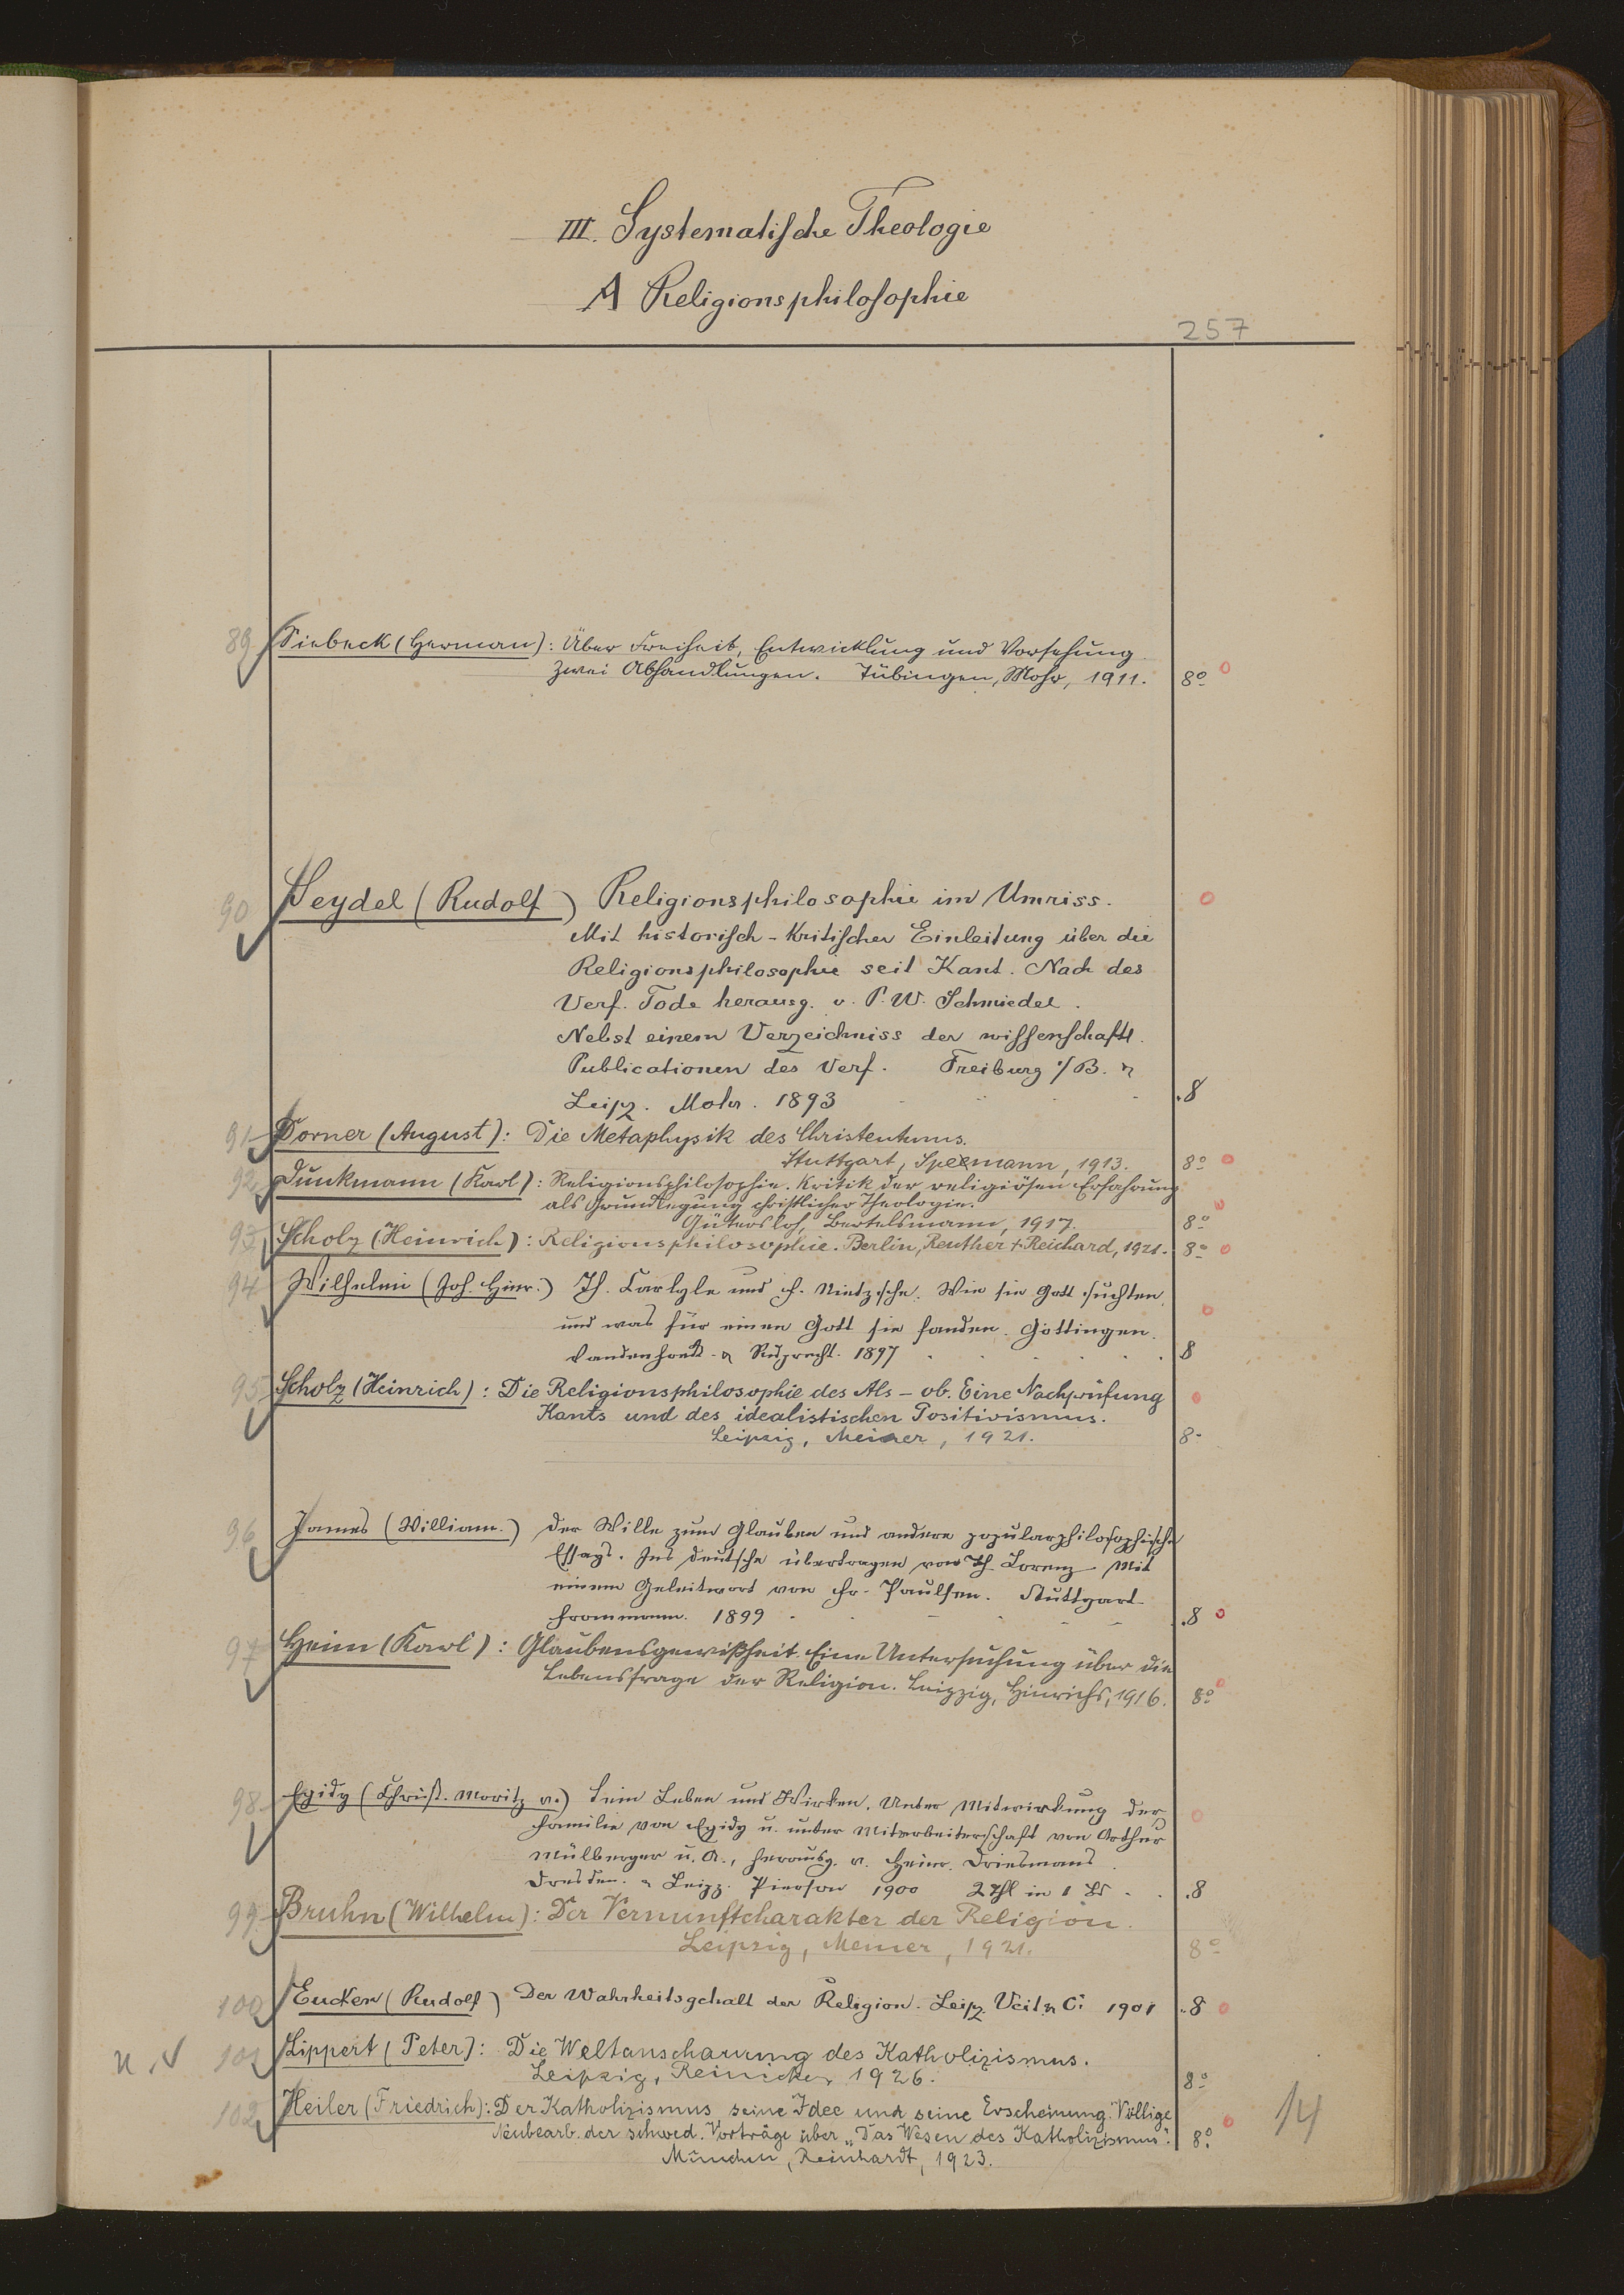 III. Systematische Theologie
A Religionsphilosophie
257
89 Siebeck (Herman): Über Freiheit, Entwicklung und Vorsehung.
Zwei Abhandlungen. Tübingen, Mohr, 1911. 8º
90 Seydel (Rudolf) Religionsphilosophie im Umriss.
Mit historisch-kritischer Einleitung über die
Religionsphilosophie seit Kant. Nach des
Verf. Tode herausg. v. P. W. Schmiedel.
Nebst einem Verzeichniss der wissenschaftl.
Publicationen des Verf. Freiburg i/B. &
Leipz. Mohr. 1893 8
91 Dorner (August): Die Metaphysik des Christentums.
Stuttgart, Speemann, 1913. 8º
92 Dunkmann (Karl): Religionsphilosophie. Kritik der religiösen Erfahrung
als Grundlegung christlicher Theologie.
Gütersloh, Bertelsmann, 1917. 8º
93 Scholz (Heinrich): Religionsphilosophie. Berlin, Reuther + Reichard, 1921. 8º
94 Wilhelmi (Joh. Hinr.) Th. Carlyle und F. Nietzsche. Wie sie Gott suchten,
und was für einen Gott sie fanden. Göttingen.
Vandenhoeck & Ruprecht. 1897 8
95 Scholz (Heinrich): Die Religionsphilosophie des Als-ob. Eine Nachprüfung
Kants und des idealistischen Positivismus.
Leipzig, Meiner, 1921. 8º
96 James (William.) Der Wille zum Glauben und andere popularphilosophische
Essays. Ins Deutsche übertragen von Th. Lorenz. Mit
einem Geleitwort von Fr. Paulsen. Stuttgart.
Frommann. 1899 8
97 Heim (Karl): Glaubensgewißheit. Eine Untersuchung über die
Lebensfrage der Religion. Leipzig, Hinrichs, 1916. 8º
98 Egidy (Christ. Moritz v.) Sein Leben und Wirken. Unter Mitwirkung der
Familie von Egidy u. unter Mitarbeiterschaft von Arthur
Mülberger u. A., herausg. v. Heinr. Driesmans.
Dresden. & Leipz. Pierson 1900 2 Thl in 1 Bd 8
99 Bruhn (Wilhelm): Der Vernunftcharakter der Religion.
Leipzig, Meiner, 1921. 8º
100 Eucken (Rudolf) Der Wahrheitsgehalt der Religion. Leipz. Veit & Ci 1901 8
101 Lippert (Peter): Die Weltanschauung des Katholizismus.
Leipzig, Reinicke, 1926. 8º
102 Heiler (Friedrich): Der Katholizismus seine Idee und seine Erscheinung. Völlige
Neubearb. der schwed. Vorträge über „Das Wesen des Katholizismus". 8º
München, Reinhardt, 1923.
14